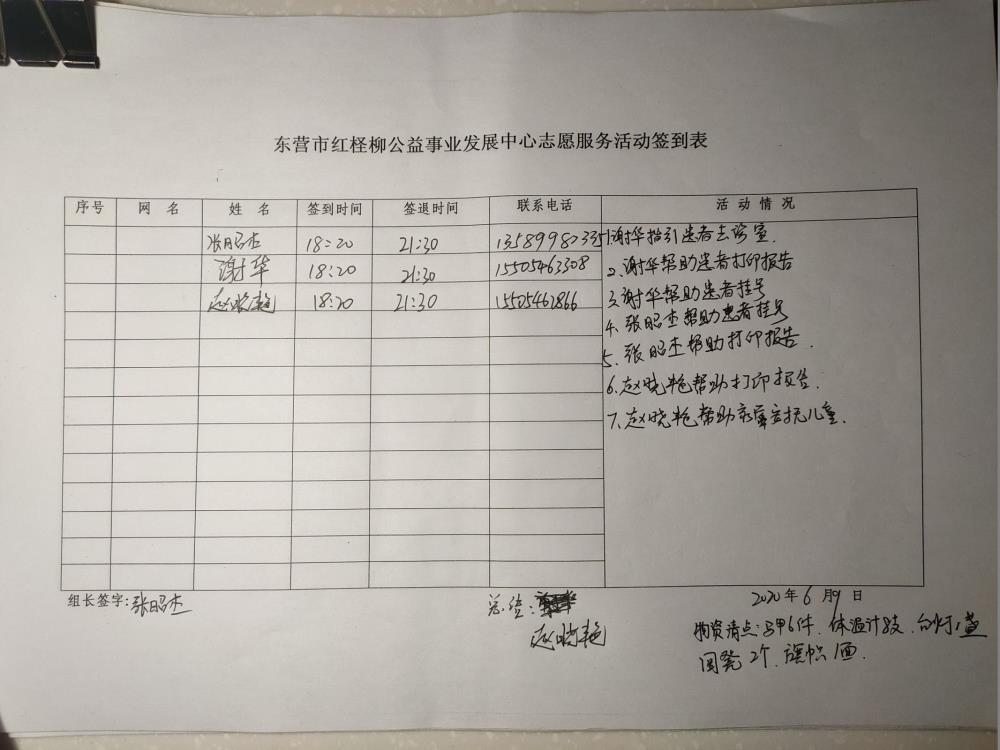 东营市红柽柳公益事业发展中心志愿服务活动签到表
序号 网 名 姓 名 签到时间 签退时间 联系电话 活 动 情 况
张昭杰 18:20 21:30 13589982335
谢华 18:20 21:30 15505463308
赵晓艳 18:20 21:30 15505462866
1.谢华指引患者去诊室.
2.谢华帮助患者打印报告
3.谢华帮助患者挂号
4.张昭杰帮助患者挂号
5.张昭杰帮助打印报告.
6.赵晓艳帮助打印报告.
7.赵晓艳帮助家属安抚儿童.
组长签字:张昭杰
总结:
赵晓艳
2020年6月9日
物资清点:马甲6件.体温计2支.台灯1盏
圆凳2个.旗帜1面.